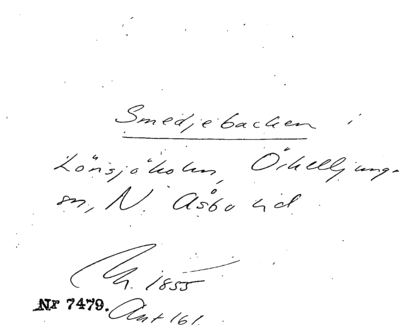 Smedjebacken i
Lönsjöholm, Örkelljunga
sn, N. Åsbo hd
1855
Nr 7479. Ant 161.